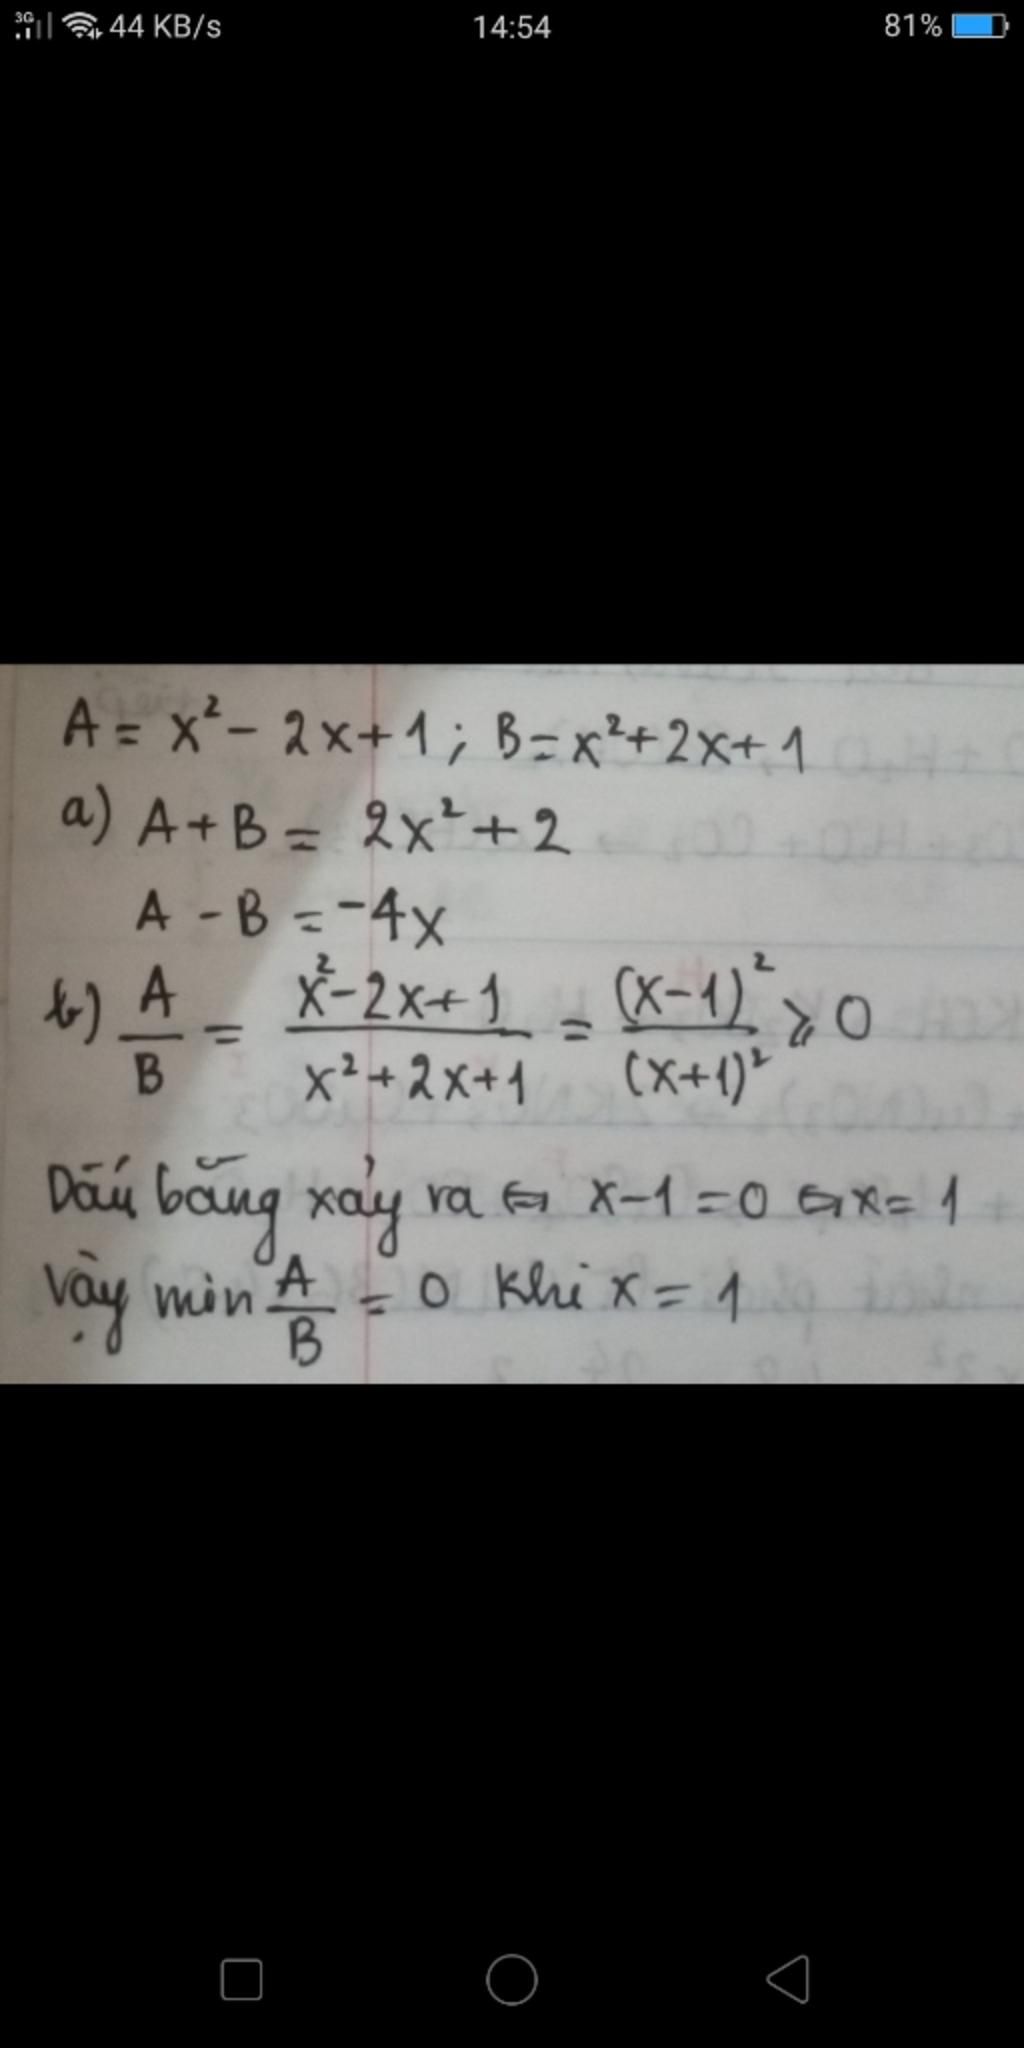 3G 44 KB/s 14:54 81%
A = x² - 2x + 1 ; B = x² + 2x + 1
a) A + B = 2x² + 2
A - B = -4x
b) A/B = (x² - 2x + 1)/(x² + 2x + 1) = (x-1)²/(x+1)² ⩾ 0
Dấu bằng xảy ra ⇔ x - 1 = 0 ⇔ x = 1
Vậy min A/B = 0 khi x = 1